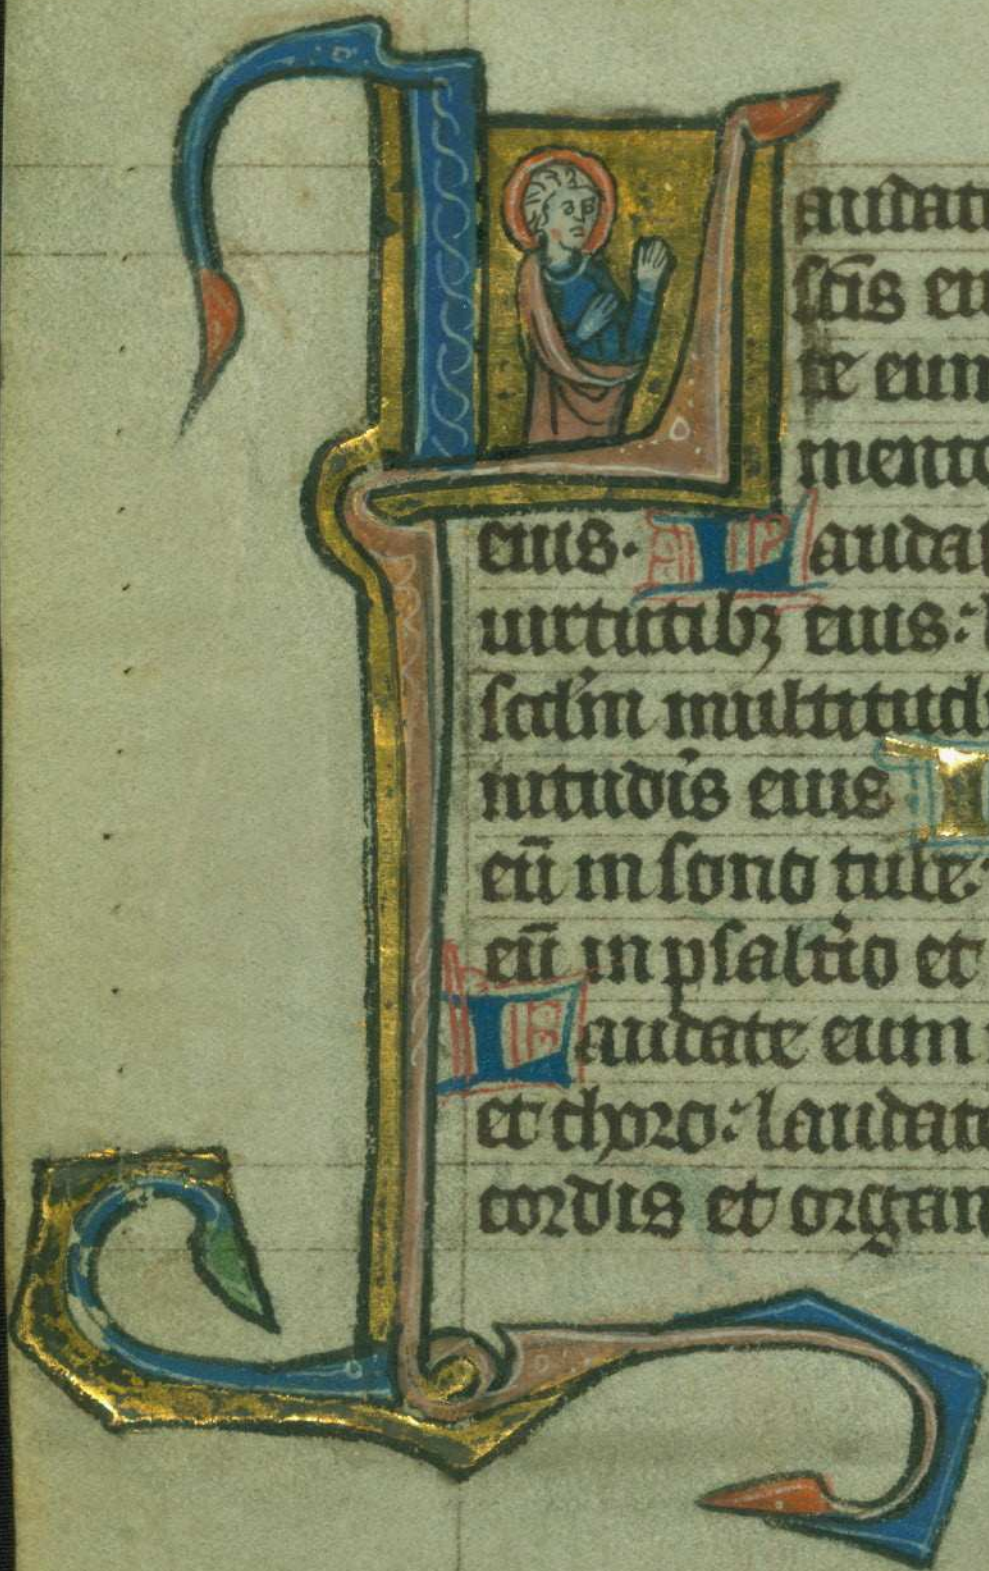 Laudat
sc̄is eiu
te eum
mento
eius. Laudat
uirtutibꝫ eius: l
scd̄m multitudi
nitudīs eius L
eū in sono tube:
eū in psalt̄io et
Laudate eum
et choro: laudate
cordis et organ